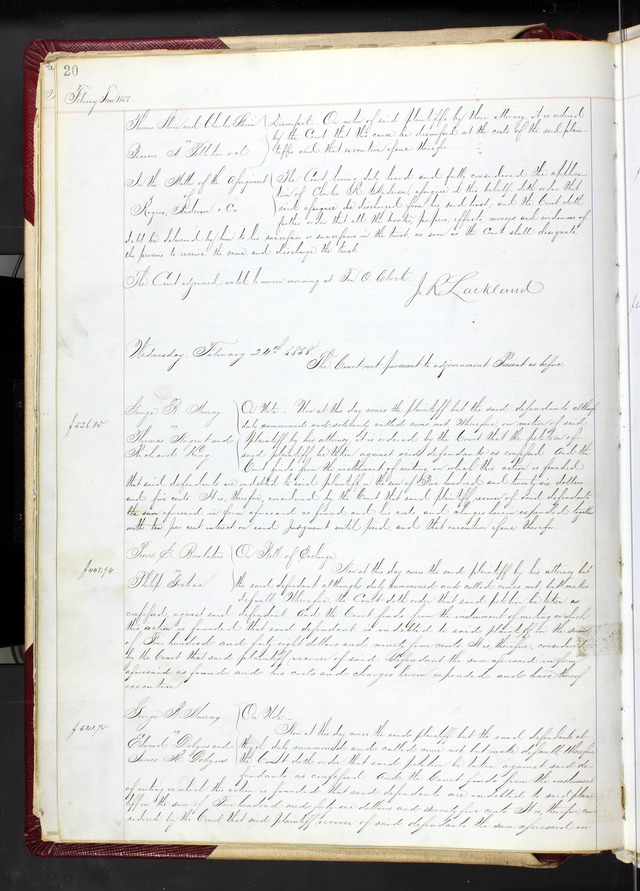 20
February Term 1858
Thomas and Charles Dismissed. On motion of said Plaintiffs by their attorney it is ordered
by the Court that this cause be dismissed at the costs of the said plain-
Francis al tiffs and that execution issue therefor
In the Matter of the Assignment The Court being duly heard and fully considered the applica-
of tion of Charles R. Anderson, assignee in this behalf, doth order that
Rogers, Anderson & Co said assignee be discharged from his said trust, and the Court doth
further order that all the books, papers, effects, moneys and evidences of
debt be delivered by him to his successor or successors in the trust, as soon as the Court shall designate
the persons to receive the same and discharge the trust
The Court adjourned until to morrow morning at Ten O. Clock
J. R Lackland
Wednesday, February 24th 1858
The Court met pursuant to adjournment Present as before
George R. On Note. Now at this day comes the plaintiff but the said defendants although
$526.05 duly summoned and called come not Wherefore on motion of said
Thomas and Plaintiff by his attorney, it is ordered by the Court that the petition of
Richard King said plaintiff be taken against said defendants as confessed And the
Court finds from the instrument of writing on which this action is founded
that said defendants are indebted to said plaintiff in the sum of Five hundred and twenty six dollars
and five cents It is, therefore, considered by the Court that said plaintiff recover of said defendants
the sum aforesaid in form aforesaid as found and his costs and charges herein expended together
with ten per cent interest on said judgment until paid, and that execution issue therefor
Pierre E. On Bill of Exchange
Now at this day comes the said plaintiff by his attorney but
$448.94 Philip the said defendant although duly summoned and called comes not, but makes
default Wherefore the Court doth order that said petition be taken as
confessed, against said defendant And the Court finds from the instrument of writing on which
this action is founded that said defendant is indebted to said plaintiff in the sum
of Four hundred and forty eight dollars and ninety four cents It is, therefore, considered
by the Court that said plaintiff recover of said Defendant the sum aforesaid in form
aforesaid as found and his costs and charges herein expended and have thereof
execution
George R. On Note
Now at this day comes the said plaintiff but the said defendants al-
$541.70 Edward and though duly summoned and called come not but make default Wherefore
James R. the Court doth order that said petition be taken against said de-
fendants as confessed And the Court finds from the instrument
of writing on which this action is founded that said defendants are indebted to said plain-
tiff in the sum of Five hundred and forty one dollars and seventy five cents It is, therefore, con-
sidered by the Court that said plaintiff recover of said defendants the sum aforesaid in